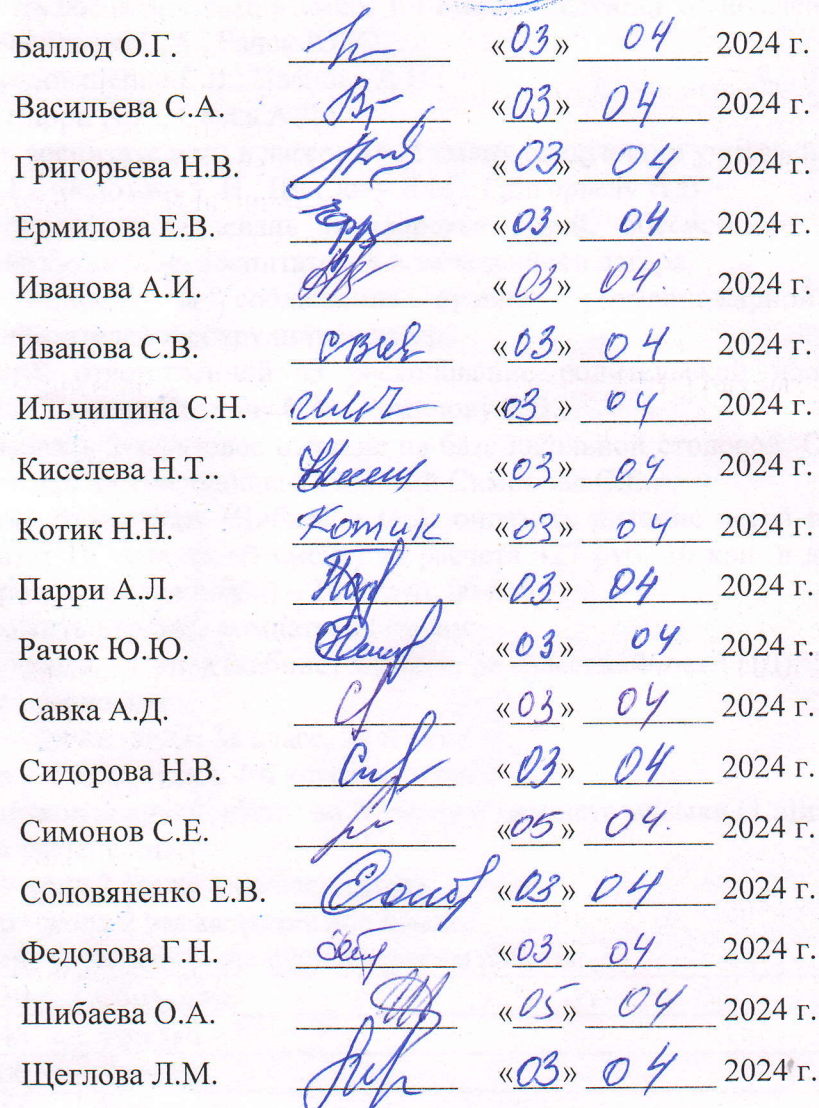 Баллод О.Г. «03» 04 2024 г.
Васильева С.А. «03» 04 2024 г.
Григорьева Н.В. «03» 04 2024 г.
Ермилова Е.В. «03» 04 2024 г.
Иванова А.И. «03» 04. 2024 г.
Иванова С.В. «03» 04 2024 г.
Ильчишина С.Н. «03» 04 2024 г.
Киселева Н.Т.. «03» 04 2024 г.
Котик Н.Н. Котик «03» 04 2024 г.
Парри А.Л. «03» 04 2024 г.
Рачок Ю.Ю. «03» 04 2024 г.
Савка А.Д. «03» 04 2024 г.
Сидорова Н.В. «03» 04 2024 г.
Симонов С.Е. «05» 04. 2024 г.
Соловяненко Е.В. «03» 04 2024 г.
Федотова Г.Н. «03» 04 2024 г.
Шибаева О.А. «05» 04 2024 г.
Щеглова Л.М. «03» 04 2024 г.